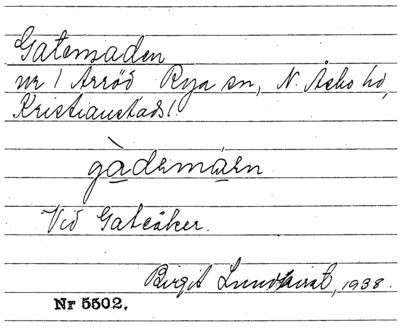 Gatemaden
nr 1 Arröd Rya sn, N. Åsbo hd,
Kristianstads l.
gàdemáen
Vid Gateåker.
Birgit Lundkvist, 1938.
Nr 5502.